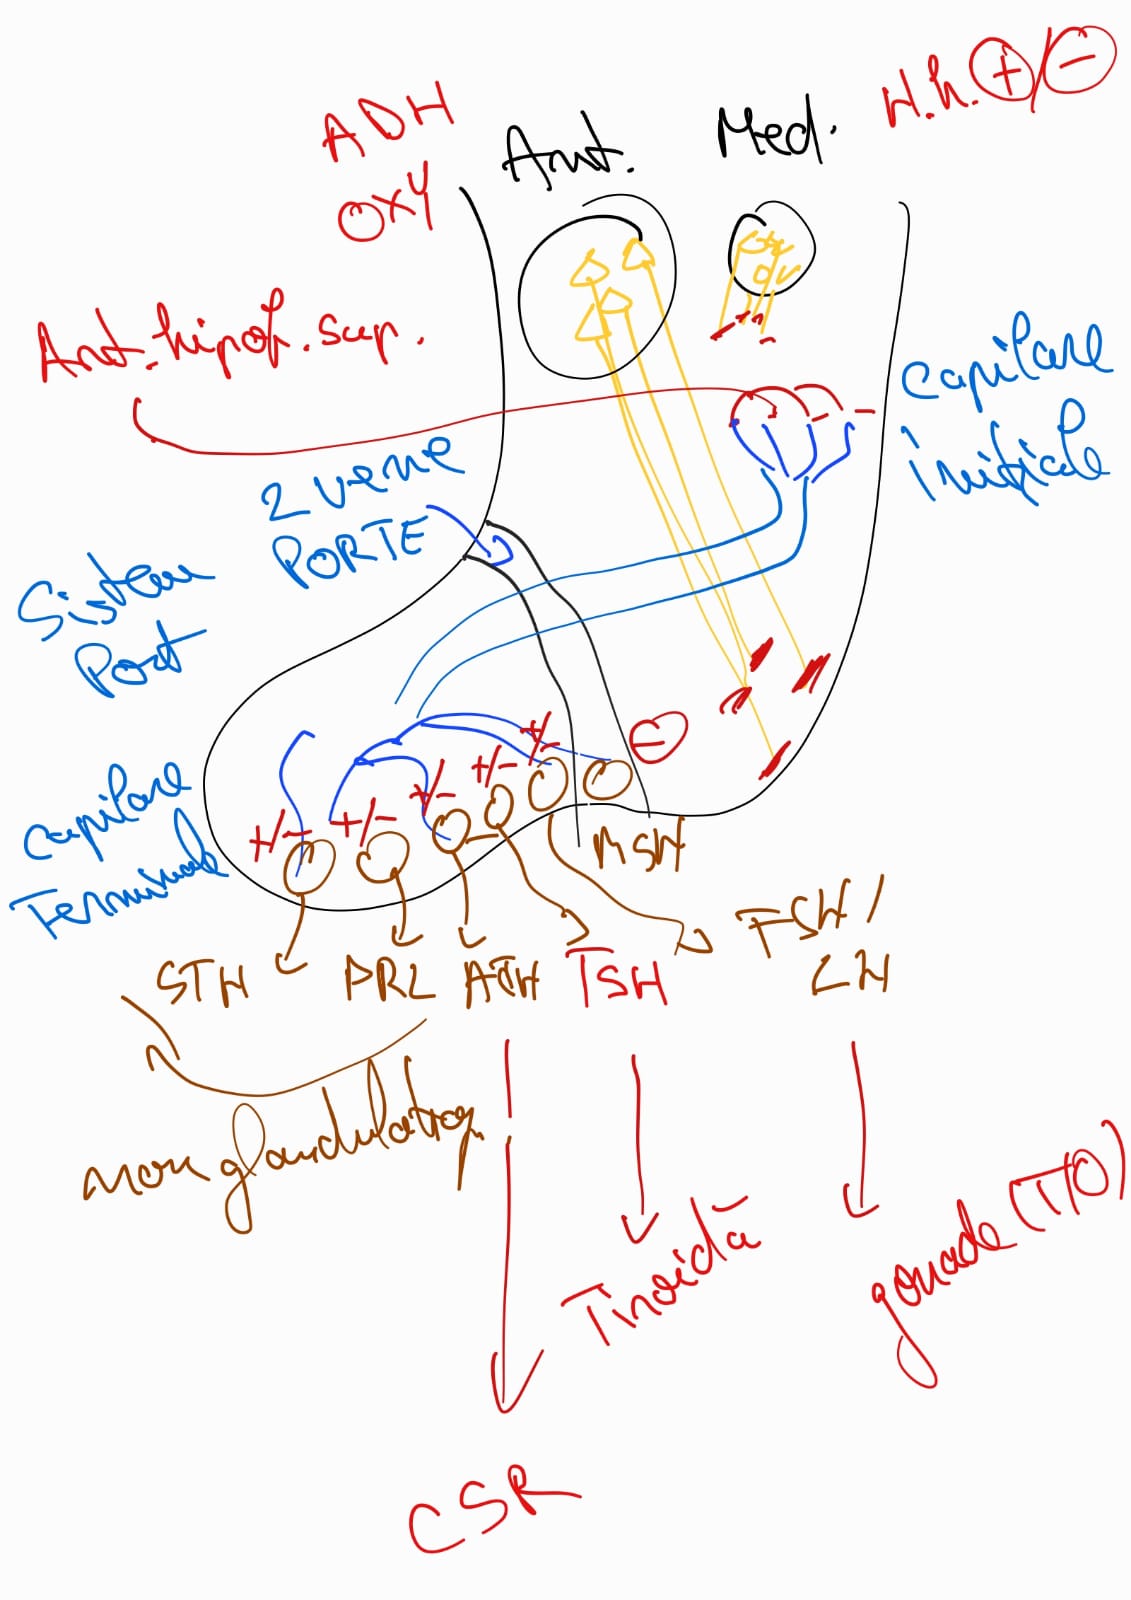 ADH
OXY
Ant.
Med.
H.h. + / -
Art. hipof. sup.
Capilare
Inițiale
2 vene
PORTE
Sistem
Port
Capilare
Terminale
+/-
+/-
+/-
+/-
+/-
-
MSH
STH
PRL
ACTH
TSH
FSH/
LH
non glandulotrop
Tiroidă
gonade (T/O)
CSR